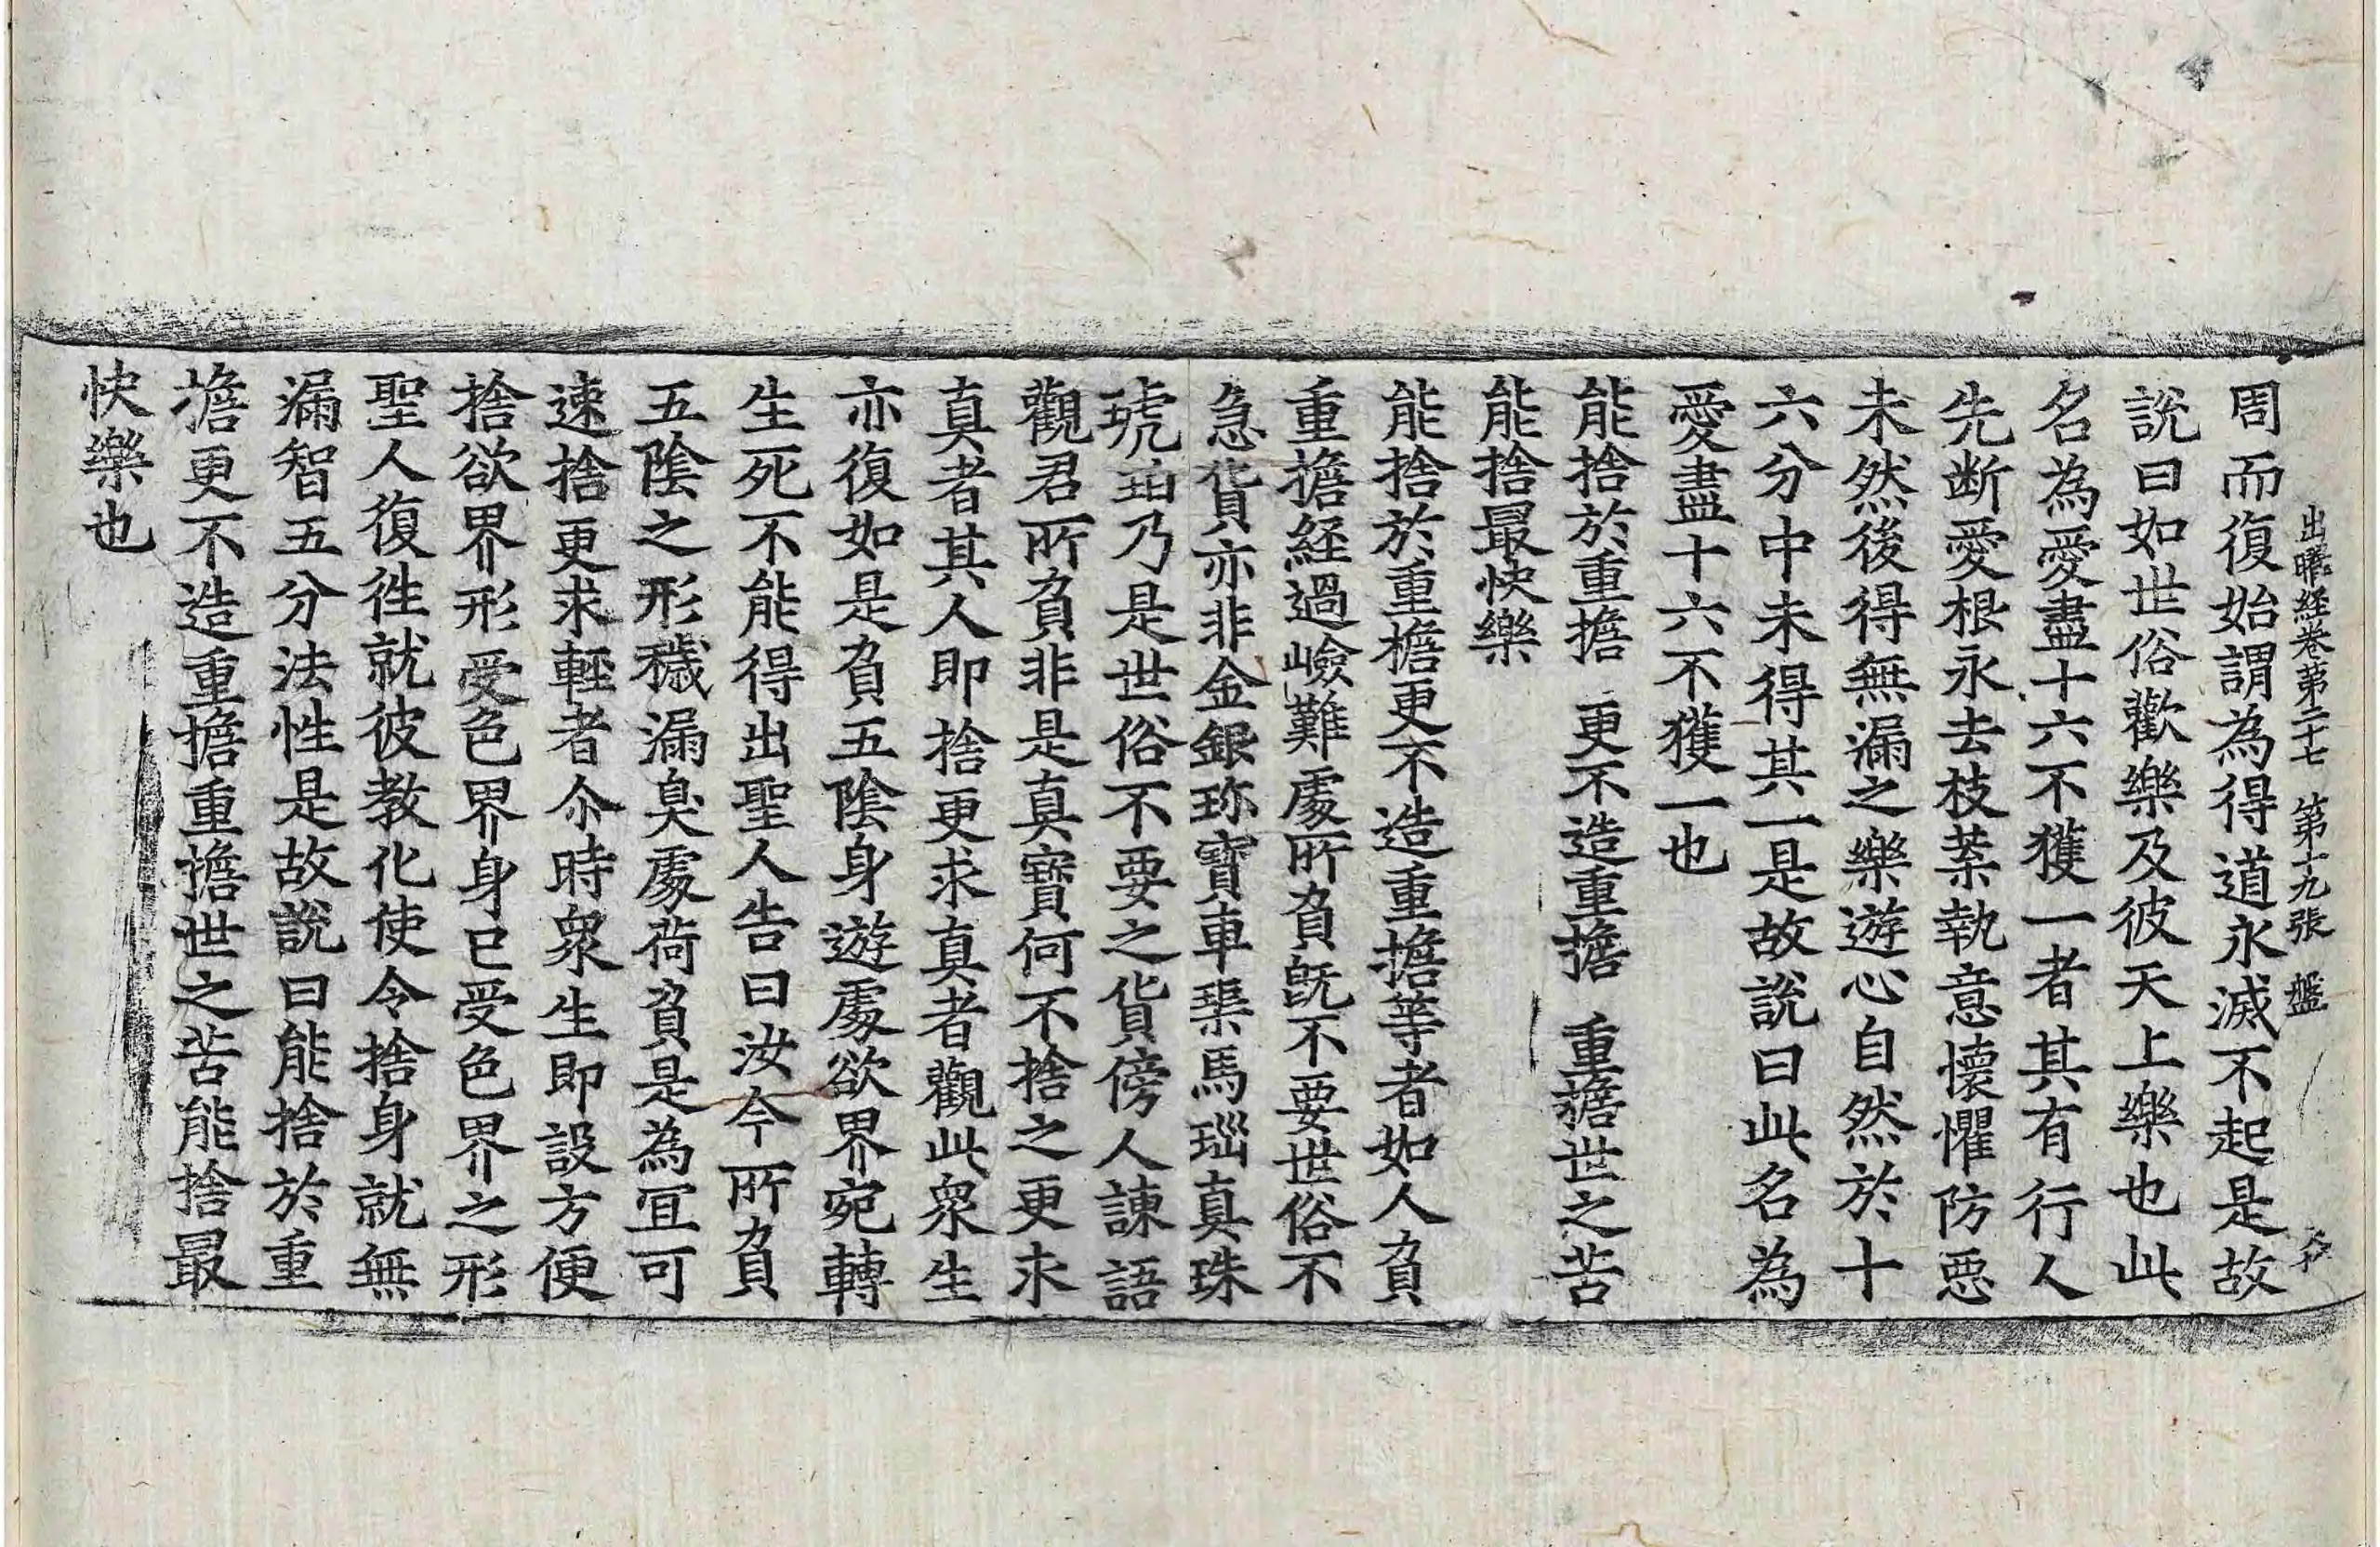 出曜経卷第二十七 第十九張 盤
周而復始謂為得道永滅不起是故
說曰如世俗歡樂及彼天上樂也此
名為愛盡十六不獲一者其有行人
先断愛根永去枝葉執意懷懼防惡
未然後得無漏之樂遊心自然於十
六分中未得其一是故說曰此名為
愛盡十六不獲一也
能捨於重擔 更不造重擔 重擔世之苦
能捨最快樂
能捨於重擔更不造重擔等者如人負
重擔経過嶮難處所負旣不要世俗不
急貨亦非金銀珎寶車𤦲馬瑙真珠
琥珀乃是世俗不要之貨傍人諫語
觀君所負非是真寶何不捨之更求
真者其人即捨更求真者觀此衆生
亦復如是負五隂身遊處欲界宛轉
生死不能得出聖人告曰汝今所負
五隂之形穢漏臭處荷負是為冝可
速捨更求輕者尒時衆生即設方便
捨欲界形受色界身已受色界之形
聖人復徃就彼教化使令捨身就無
漏智五分法性是故說曰能捨於重
擔更不造重擔重擔世之苦能捨最
快樂也